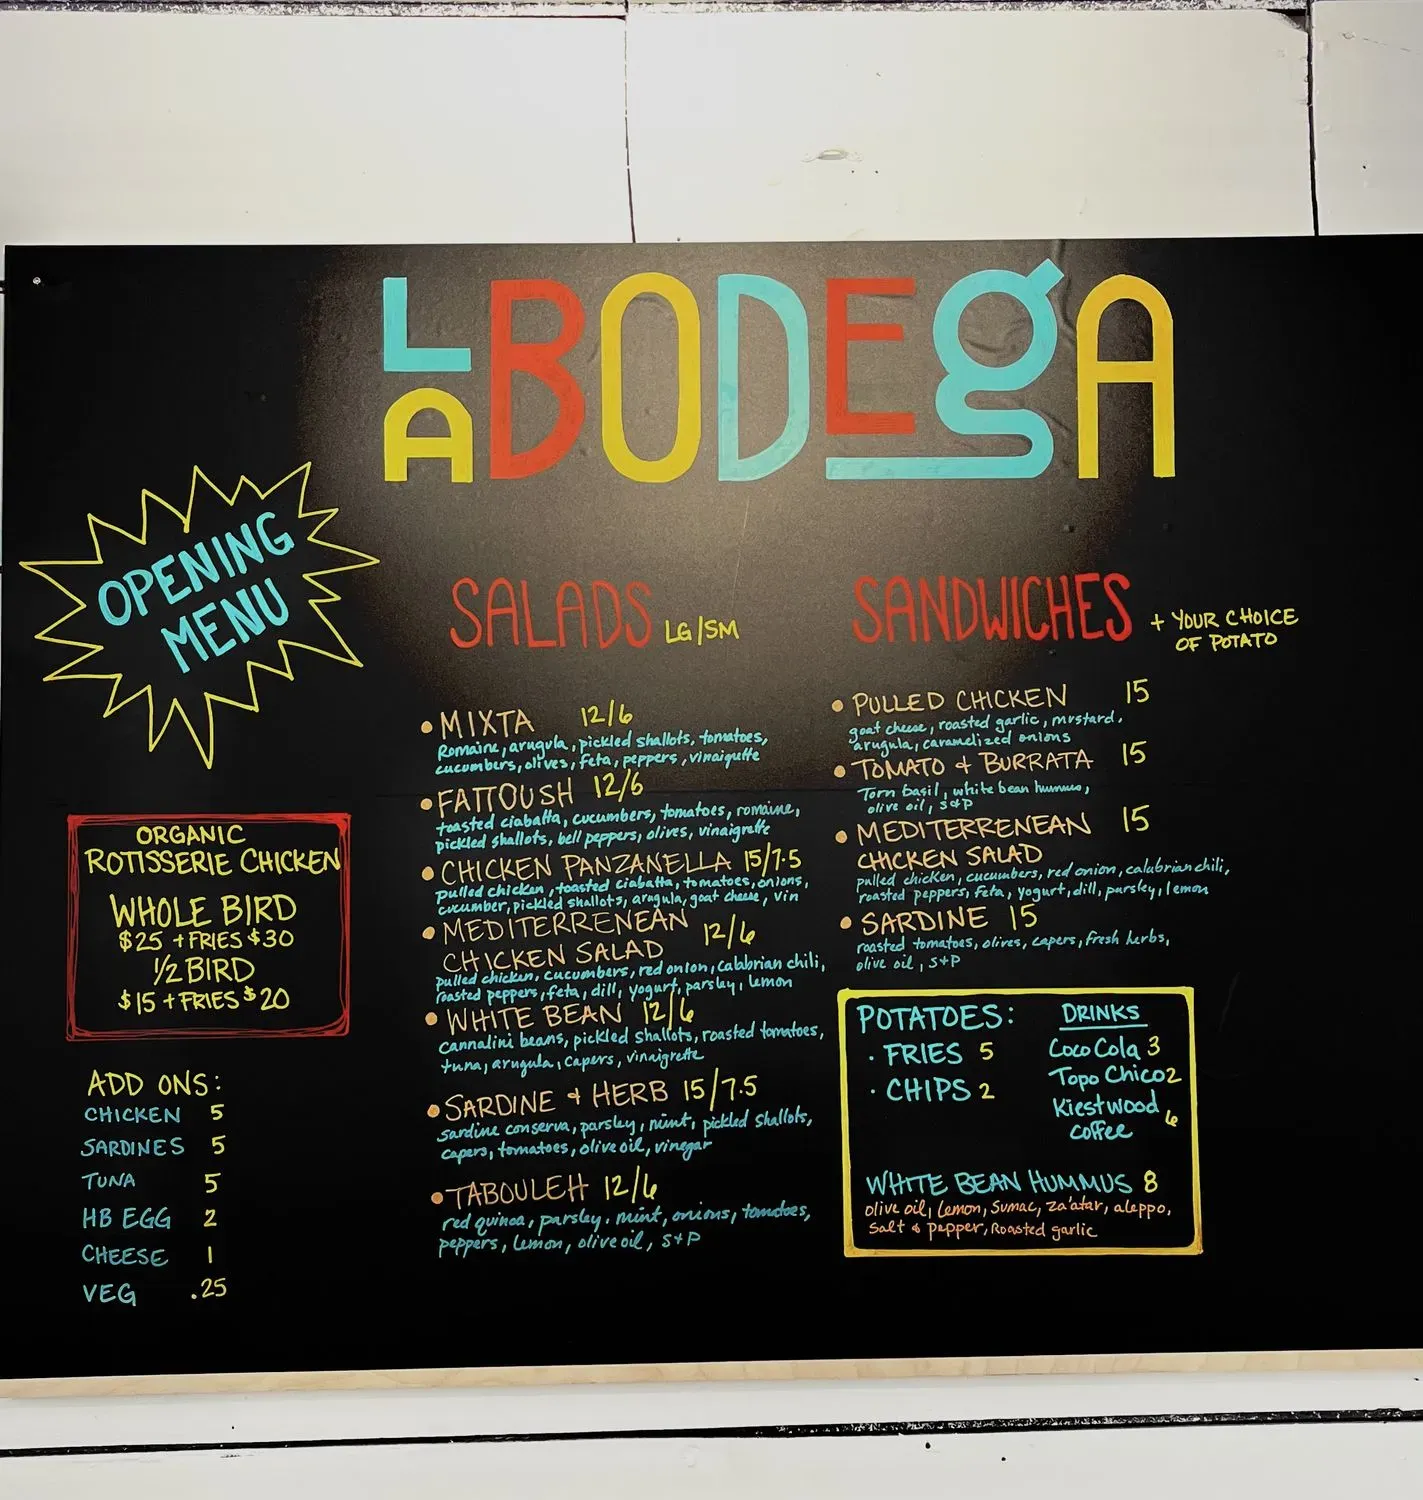 LA BODEGA
OPENING
MENU
ORGANIC
ROTISSERIE CHICKEN
WHOLE BIRD
$25 + FRIES $30
1/2 BIRD
$15 + FRIES $20
ADD ONS:
CHICKEN 5
SARDINES 5
TUNA 5
HB EGG 2
CHEESE 1
VEG .25
SALADS LG/SM
• MIXTA 12/6
Romaine, arugula, pickled shallots, tomatoes,
cucumbers, olives, feta, peppers, vinaigutte
• FATTOUSH 12/6
toasted ciabatta, cucumbers, tomatoes, romaine,
pickled shallots, bell peppers, olives, vinaigrette
• CHICKEN PANZANELLA 15/7.5
pulled chicken, toasted ciabatta, tomatoes, onions,
cucumber, pickled shallots, arugula, goat cheese, vin
• MEDITERRENEAN 12/6
CHICKEN SALAD
pulled chicken, cucumbers, red onion, calabrian chili,
roasted peppers, feta, dill, yogurt, parsley, lemon
• WHITE BEAN 12/6
cannalini beans, pickled shallots, roasted tomatoes,
tuna, arugula, capers, vinaigrette
• SARDINE + HERB 15/7.5
sardine conserva, parsley, mint, pickled shallots,
capers, tomatoes, olive oil, vinegar
• TABOULEH 12/6
red quinoa, parsley, mint, onions, tomatoes,
peppers, lemon, olive oil, S+P
SANDWICHES + YOUR CHOICE
OF POTATO
• PULLED CHICKEN 15
goat cheese, roasted garlic, mustard,
arugula, caramelized onions
• TOMATO + BURRATA 15
Torn basil, white bean hummus,
olive oil, S+P
• MEDITERRENEAN 15
CHICKEN SALAD
pulled chicken, cucumbers, red onion, calabrian chili,
roasted peppers, feta, yogurt, dill, parsley, lemon
• SARDINE 15
roasted tomatoes, olives, capers, fresh herbs,
olive oil, S+P
POTATOES:
· FRIES 5
· CHIPS 2
DRINKS
Coco Cola 3
Topo Chico 2
Kiestwood 6
coffee
WHITE BEAN HUMMUS 8
olive oil, lemon, sumac, za'atar, aleppo,
salt & pepper, Roasted garlic